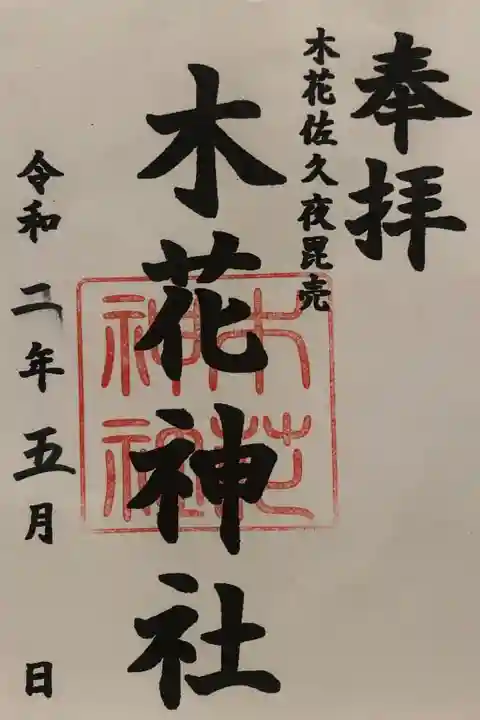 奉拝
木花佐久夜毘売
木花神社
木花神社
令和二年五月 日